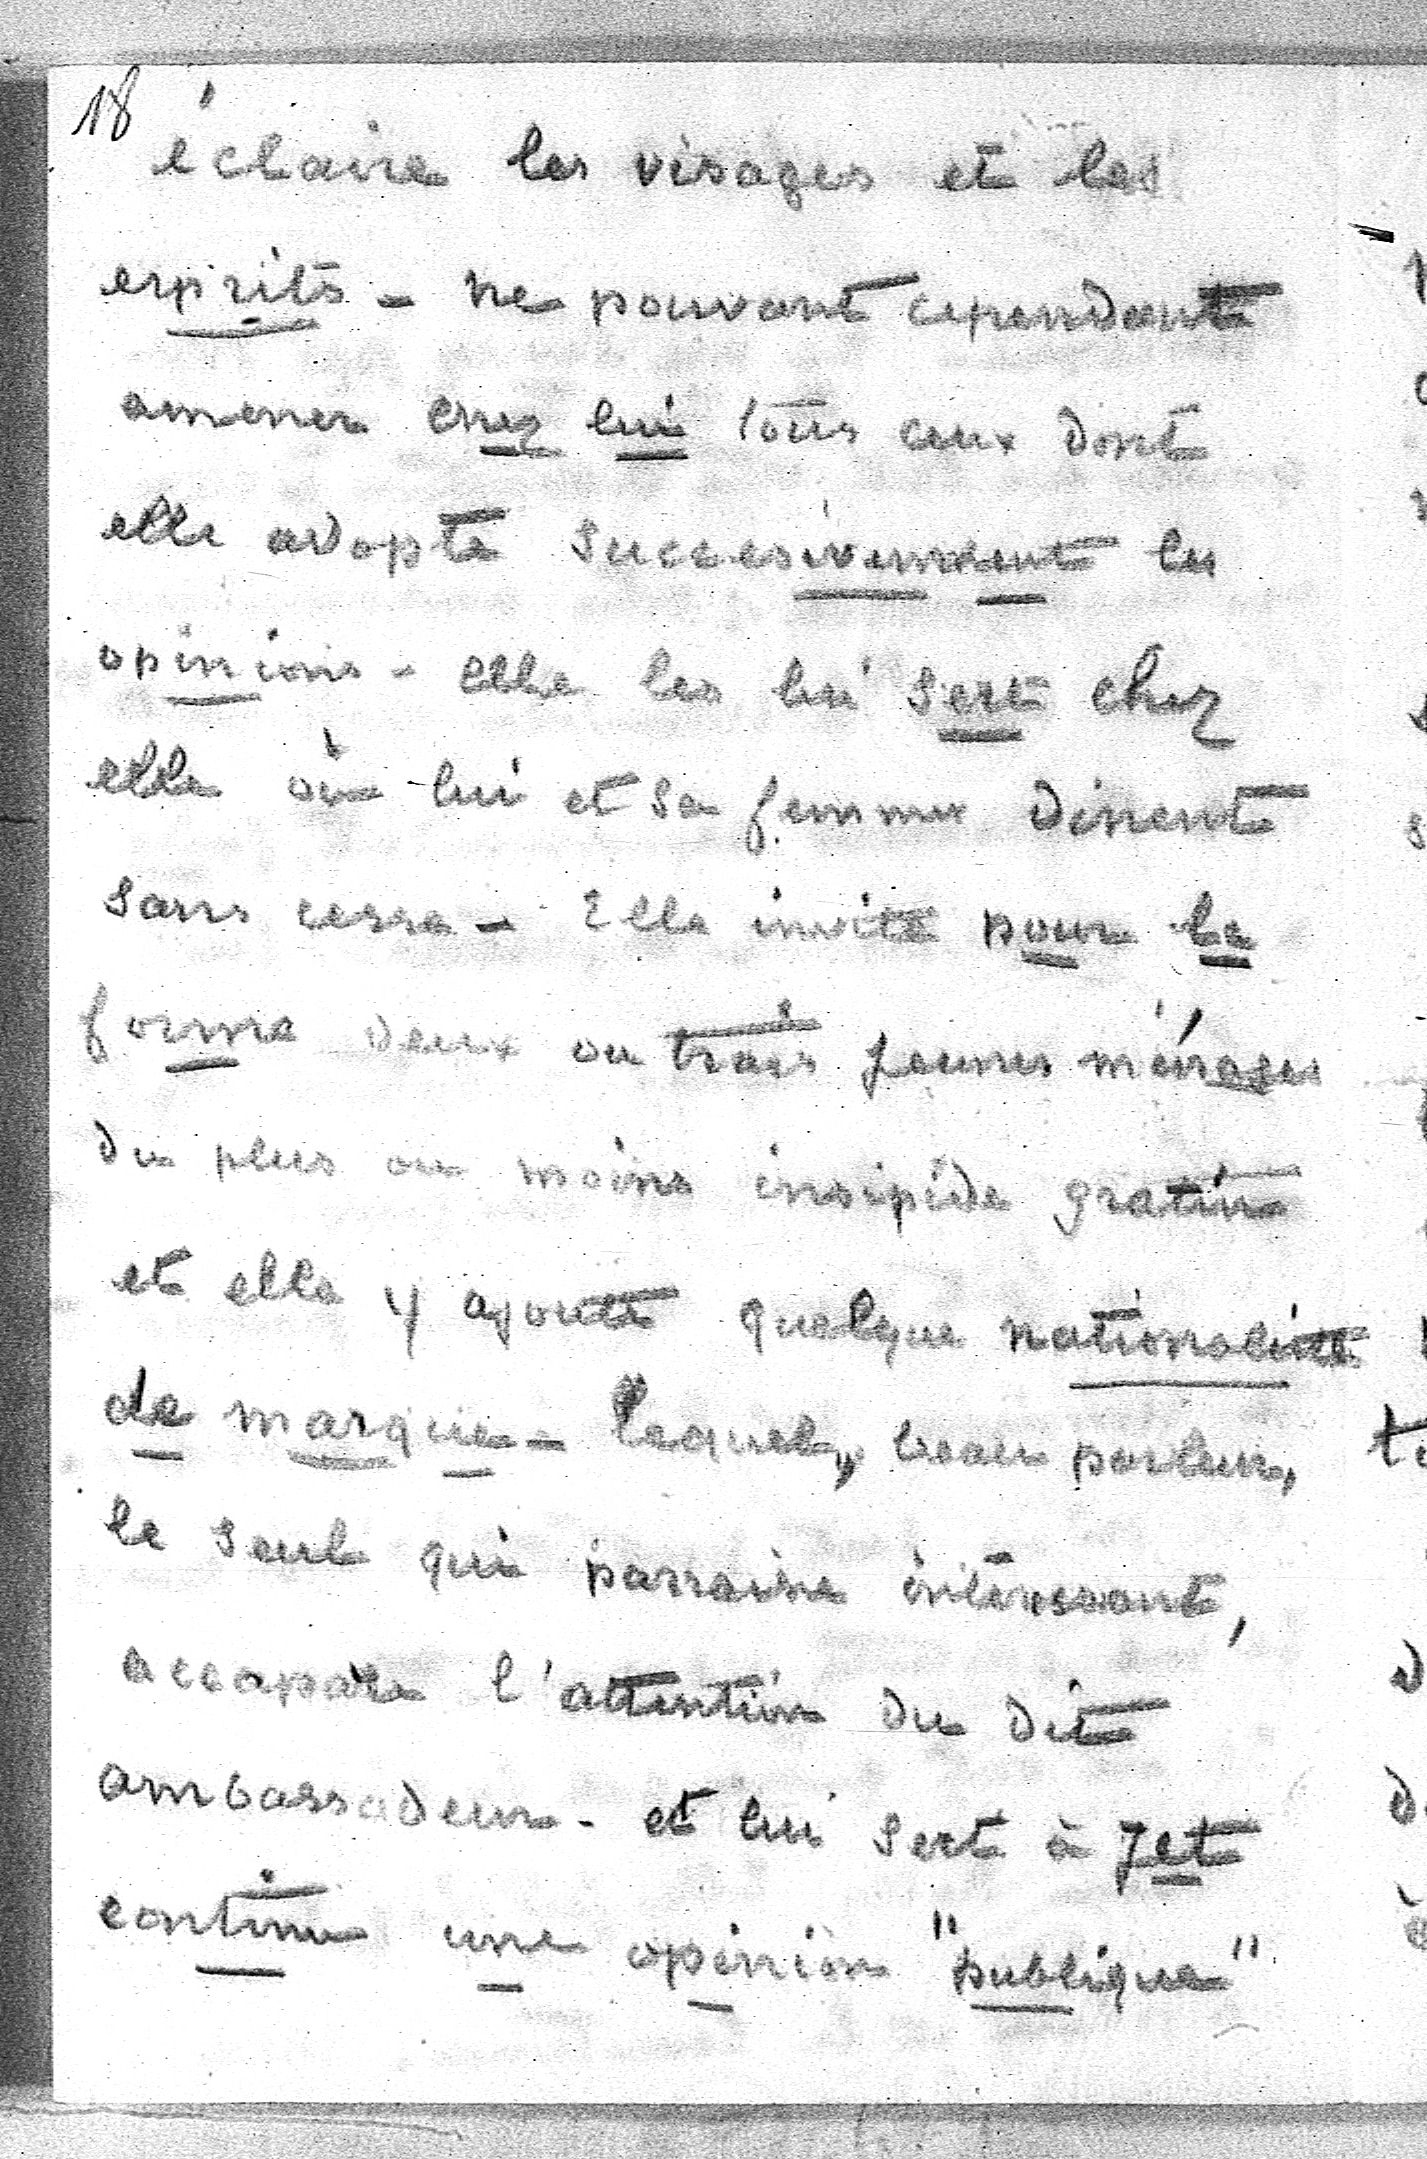 18
éclaire les visages et les
esprits - ne pouvant cependant
amener chez lui tous ceux dont
elle adopte succesivement les
opinions - elle les lui sert chez
elle où lui et sa femme dinent
sans cesse - Elle invite pour la
forme deux ou trois jeunes ménages
du plus ou moins insipide gratin
et elle y ajoute quelque nationaliste
de marque - lequel, beau parleur,
le seul qui parraine intéressant,
accapare l'attention du dit
ambassadeur - et lui sert à jet
continu une opinion "publique"